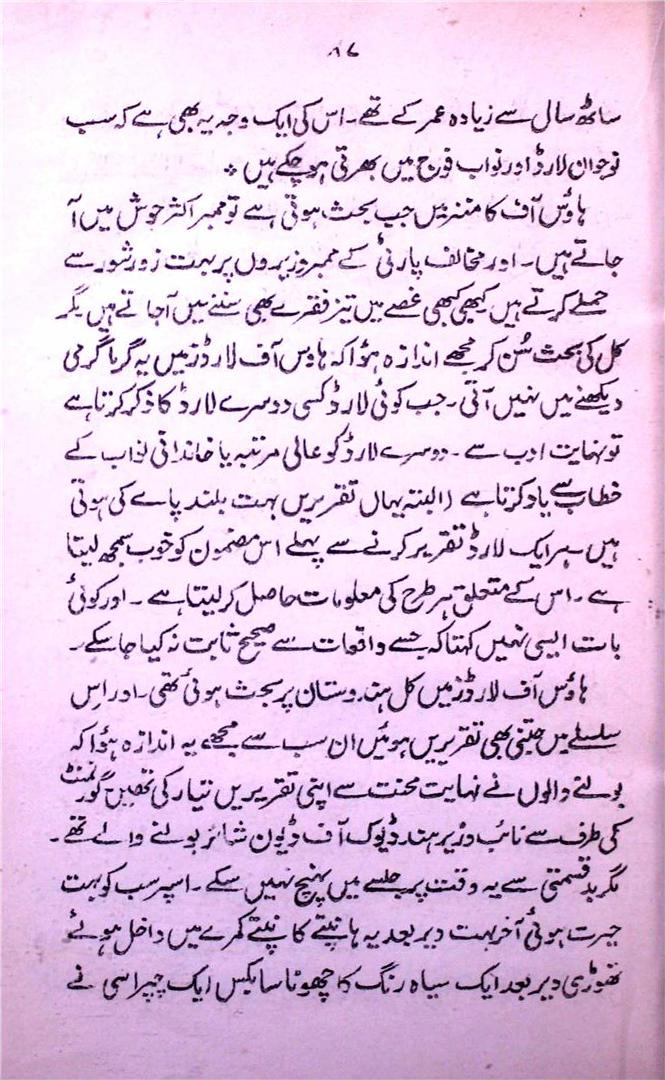 ۸۷
ساٹھ سال سے زیادہ عمر کے تھے۔ اس کی ایک وجہ یہ بھی ہے کہ سب
نوجوان لارڈ اور نواب فوج میں بھرتی ہو چکے ہیں ٭
ہاؤس آف کامنز میں جب بحث ہوتی ہے تو ممبر اکثر جوش میں آ
جاتے ہیں۔ اور مخالف پارٹی کے ممبر وزیروں پر بہت زور شور سے
حملے کرتے ہیں کبھی کبھی غصے میں تیز فقرے بھی سننے میں آجاتے ہیں مگر
کل کی بحث سُن کر مجھے اندازہ ہوُا کہ ہاؤس آف لارڈز میں یہ گرما گرمی
دیکھنے میں نہیں آتی۔ جب کوئی لارڈ کسی دوسرے لارڈ کا ذکر کرتا ہے
تو نہایت ادب سے۔ دوسرے لارڈ کو عالی مرتبہ یا خاندانی نواب کے
خطاب سے یاد کرتا ہے (البتہ یہاں تقریریں بہت بلند پائے کی ہوتی
ہیں ہر ایک لارڈ تقریر کرنے سے پہلے اس مضمون کو خوب سمجھ لیتا
ہے۔ اس کے متعلق ہر طرح کی معلومات حاصل کر لیتا ہے۔ اور کوئی
بات ایسی نہیں کہتا کہ جسے واقعات سے صحیح ثابت نہ کیا جا سکے۔
ہاؤس آف لارڈز میں کل ہندوستان پر بحث ہوئی تھی۔ اور اِس
سلسلے میں جتنی بھی تقریریں ہوئیں ان سب سے مجھے یہ اندازہ ہوُا کہ
بولنے والوں نے نہایت محنت سے اپنی تقریریں تیار کی تھیں۔ گورنمنٹ
کی طرف سے نائب وزیر ہند ڈیوک آف ڈیون شائر بولنے والے تھے۔
مگر بدقسمتی سے یہ وقت پر جلسے میں پہنچ نہیں سکے۔ اسپر سب کو بہت
حیرت ہوئی آخر بہت دیر بعد یہ ہانپتے کانپتے کمرے میں داخل ہوئے
تھوڑی دیر بعد ایک سیاہ رنگ کا چھوٹا سا بکس ایک چپراسی نے